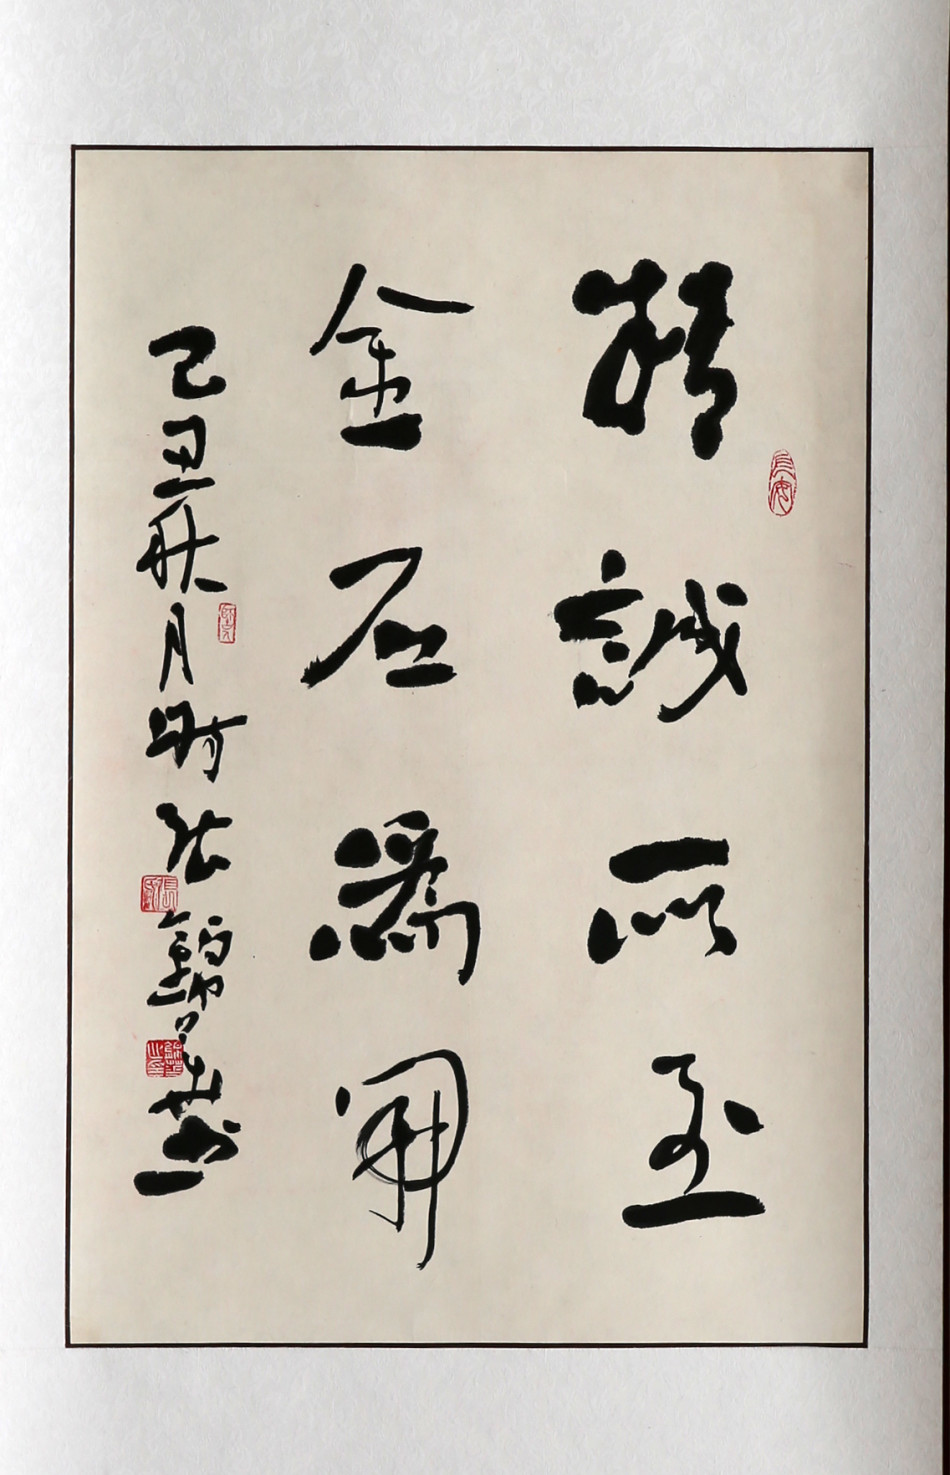 精誠所至
金石為開
己丑秋月時張錦
長安